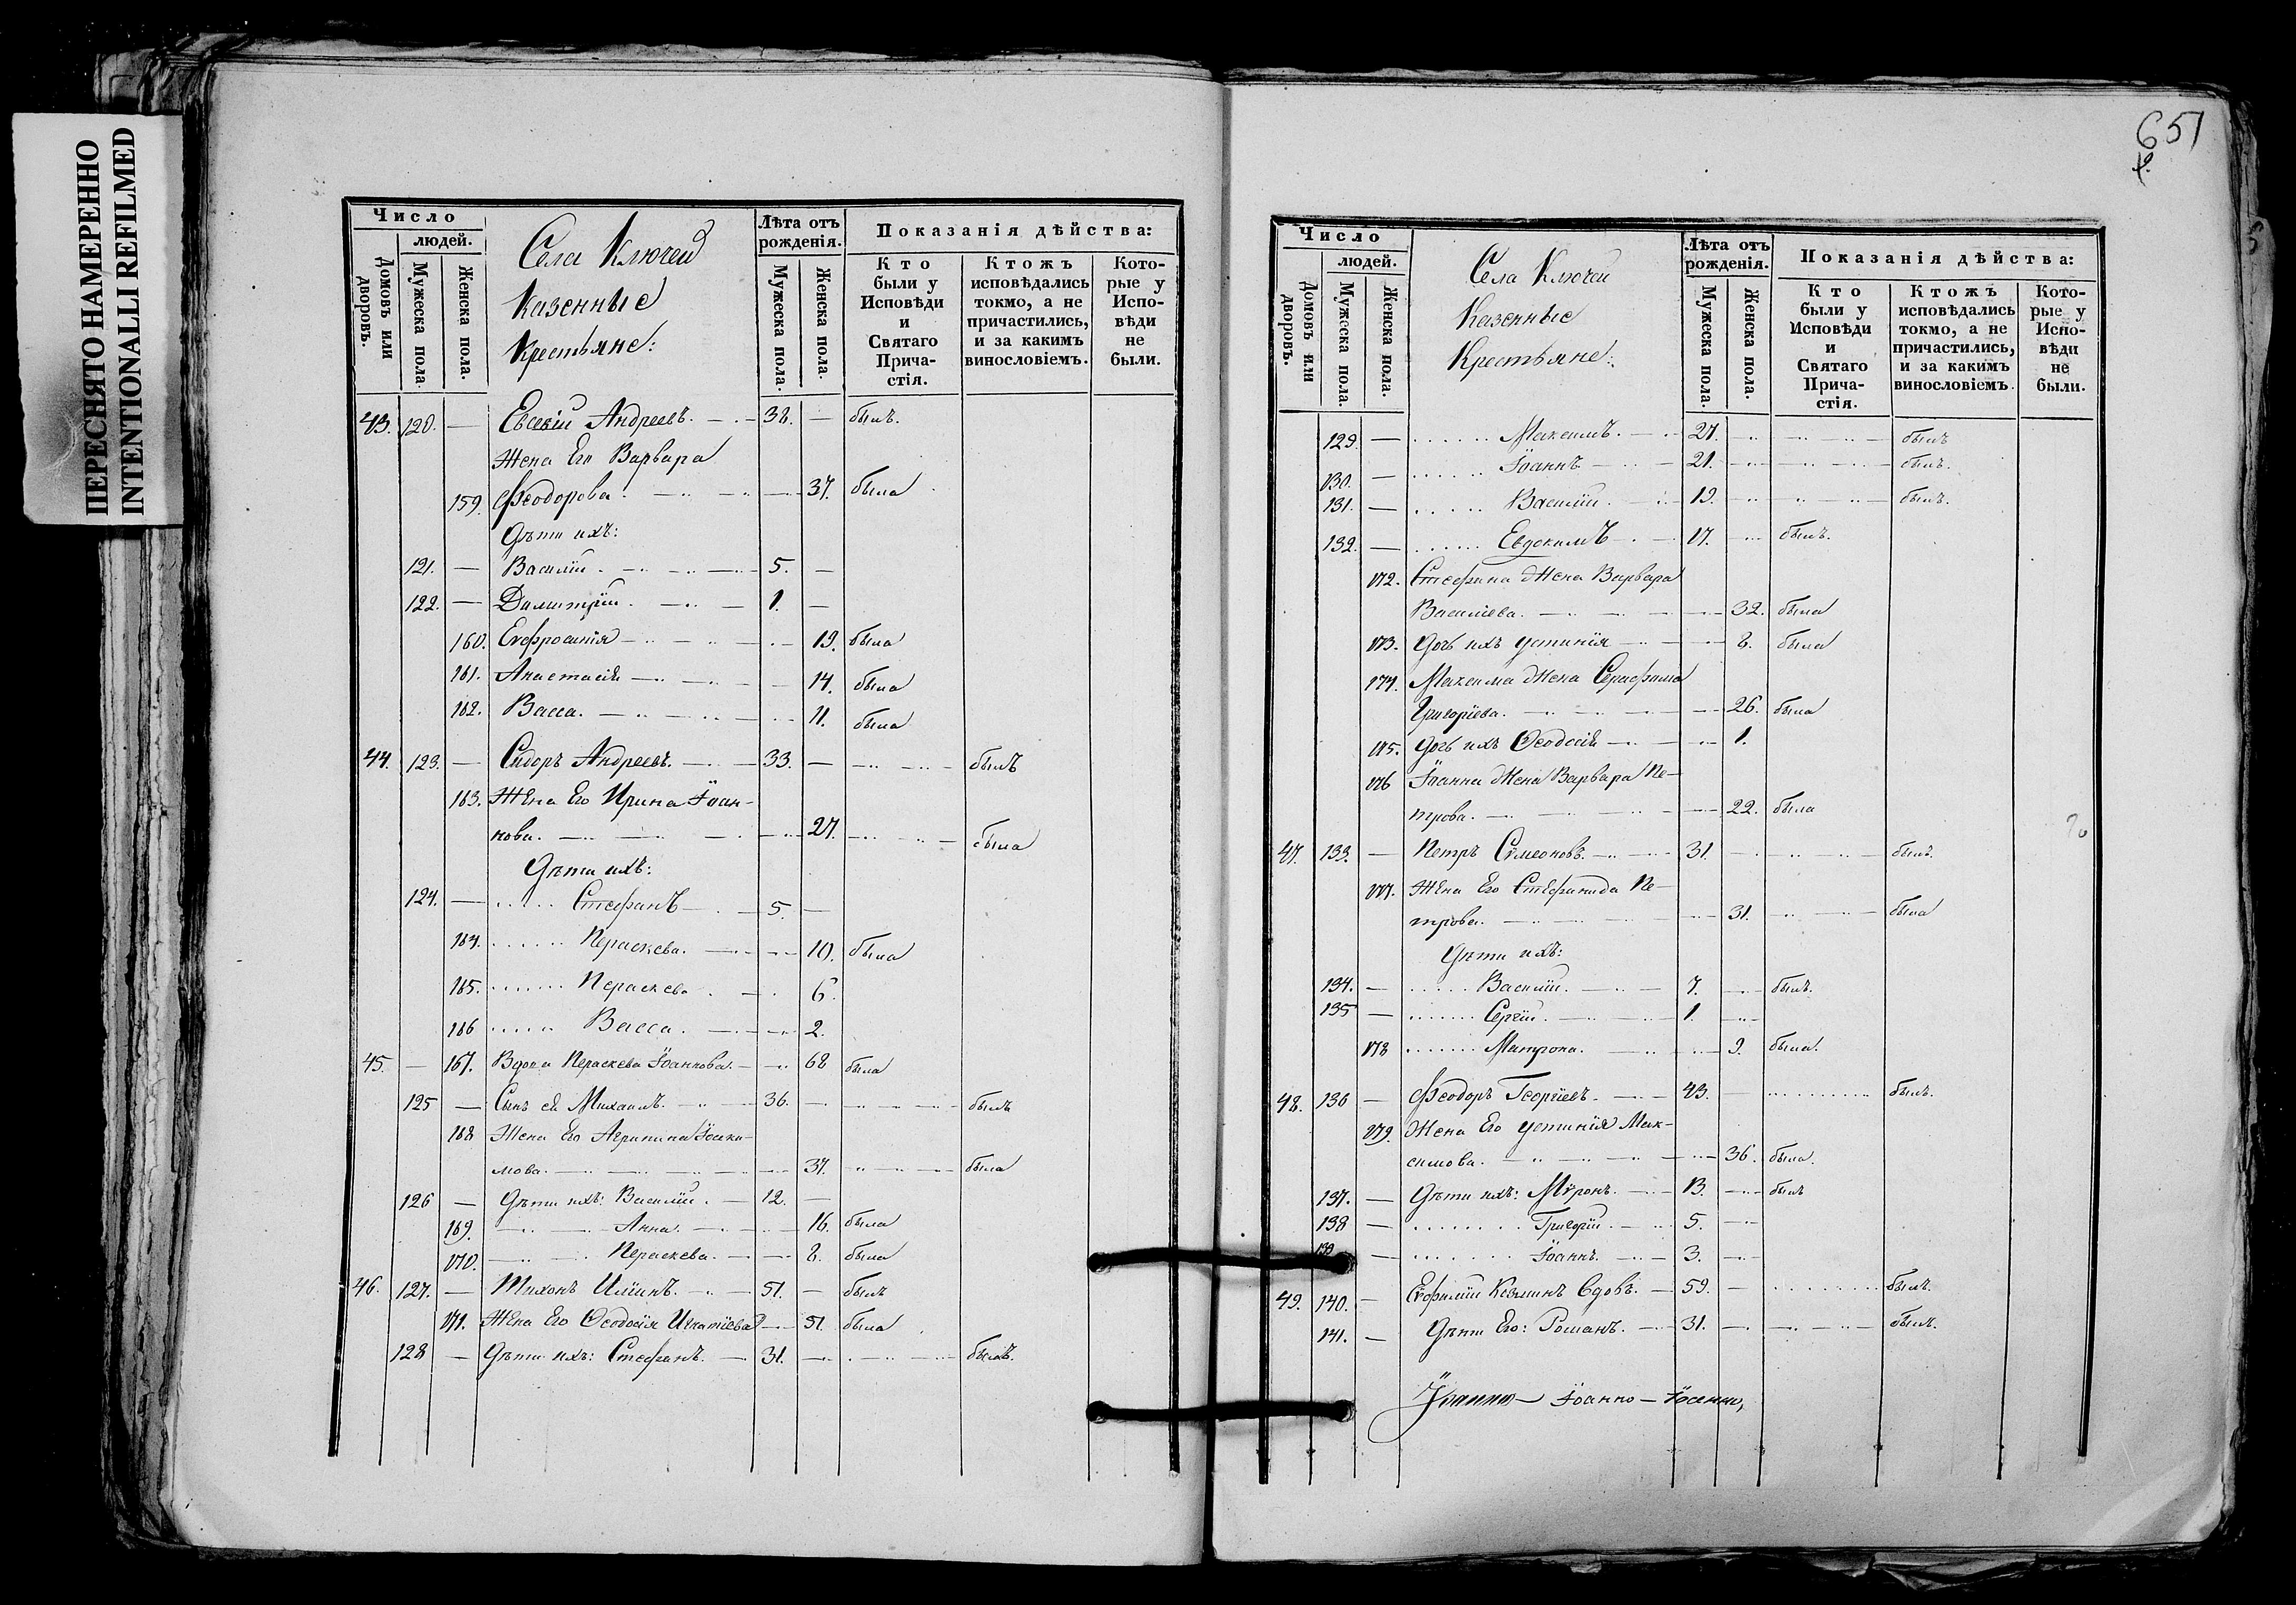 ПЕРЕСНЯТО НАМЕРЕННО
INTENTIONALLI REFILMED
Число
людей.
Домовъ или дворовъ.
Мужеска пола.
Женска пола.
Села Ключей
Казенные
Крестьяне:
Лѣта отъ рожденія.
Мужеска пола.
Женска пола.
Показанія дѣйства:
Кто были у Исповѣди и Святаго Прича-стія.
Ктожъ исповѣдались токмо, а не причастились, и за какимъ винословіемъ.
Кото-рые у Испо-вѣди не были.
43. 120. — Евсевій Андреевъ. — 38. — былъ.
Жена Его Варвара
159. Феодорова. — 37. была
Дѣти ихъ:
121. — Василій. — 5. —
122. — Димитрій. — 1. —
160. Евфросинія — 19. была
161. Анастасія — 14. была
162. Васса. — 11. была
44. 123. — Сидоръ Андреевъ. — 33. — былъ
163. Жена Его Ирина Іоан-
нова. — 27. — была
Дѣти ихъ:
124. — Стефанъ — 5. —
164. Параскева. — 10. была
165. Параскева. — 6.
166 Васса. — 2.
45. — 167. Вдова Параскева Іоаннова. — 68 была
125 — Сынъ ея Михаилъ. — 36. — былъ
168 Жена Его Агрипина Іоаки-
мова. — 37. — была
126 — Дѣти ихъ: Василій. — 12. —
169. — Анна. — 16. была
170. — Параскева. — 8. была
46. 127. — Тихонъ Ильинъ. — 51. — былъ
171. Жена Его Ѳеодосія Игнатіева — 51. была
128 — Дѣти ихъ: Стефанъ. — 31. — былъ.
651
Число
людей.
Домовъ или дворовъ.
Мужеска пола.
Женска пола.
Села Ключей
Казенные
Крестьяне:
Лѣта отъ рожденія.
Мужеска пола.
Женска пола.
Показанія дѣйства:
Кто были у Исповѣди и Святаго Прича-стія.
Ктожъ исповѣдались токмо, а не причастились, и за какимъ винословіемъ.
Кото-рые у Испо-вѣди не были.
129. — Максимъ. — 27. — былъ
130. — Іоаннъ — 21. — былъ.
131. — Василій. — 19. — былъ.
132. — Евдокимъ — 17. — былъ.
172. Стефана Жена Варвара
Васильева. — 32. была
173. Дочь ихъ Устинія — 8. была
174. Максима Жена Серафима
Григоріева. — 26. была
175. Дочь ихъ Ѳеодосія — 1.
176 Іоанна Жена Варвара Пе-
трова. — 22. была
47. 133. — Петръ Сѵмеоновъ. — 31. — былъ.
177. Жена Его Стефанида Пе-
трова. — 31. — была
Дѣти ихъ:
134. — Василій. — 7. — былъ.
135 — Сергій. — 1. —
178 Матрона. — 9. была.
48. 136 — Феодоръ Георгіевъ. — 43. — былъ.
179. Жена Его Устинія Мак-
симова. — 36. была.
137. — Дѣти ихъ: Мѵронъ. — 13. — былъ
138 — Григорій. — 5. —
139 — Іоаннъ. — 3. —
49. 140. — Евфимій Козминъ вдовъ. — 59. — былъ.
141. — Дѣти Его: Романъ. — 31. — былъ.